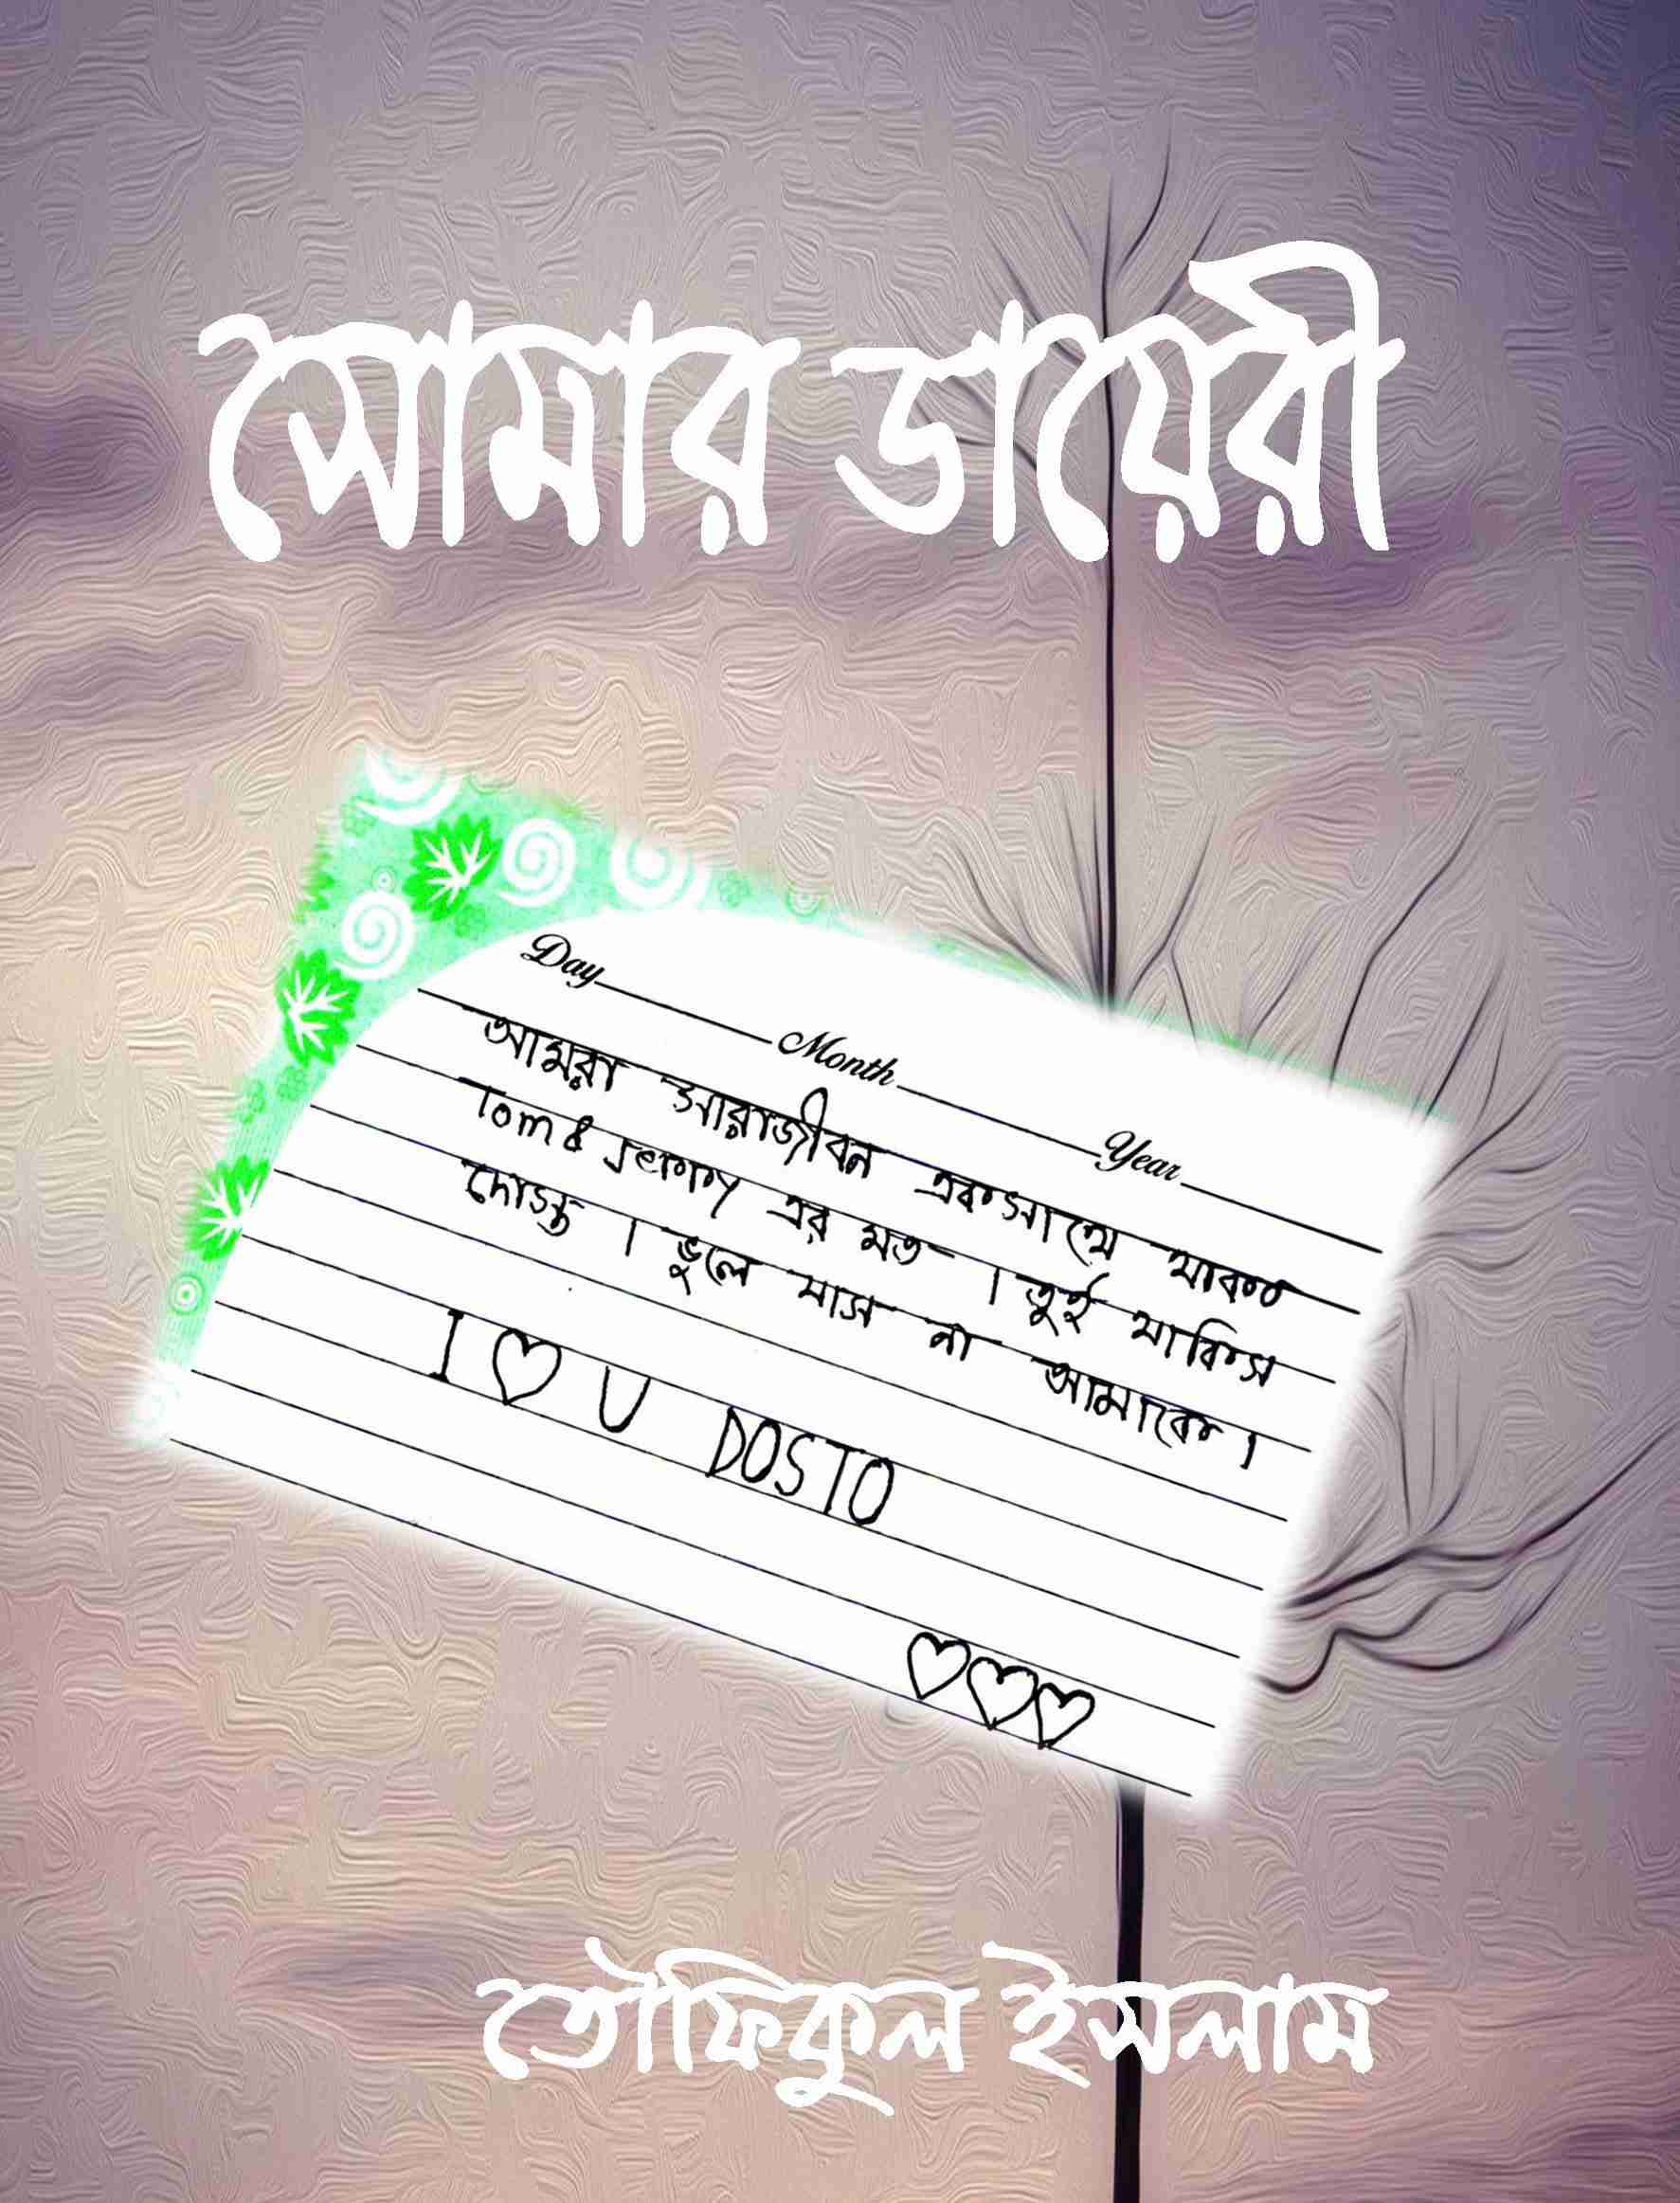 সোমার ডায়েরী
Day Month Year
আমরা সারাজীবন একসাথে থাকব
Tom & Jerry এর মত । তুই থাকিস
দোস্ত । ভুলে যাস না আমাকে ।
I ♡ U DOSTO
♡♡♡
তৌফিকুল ইসলাম